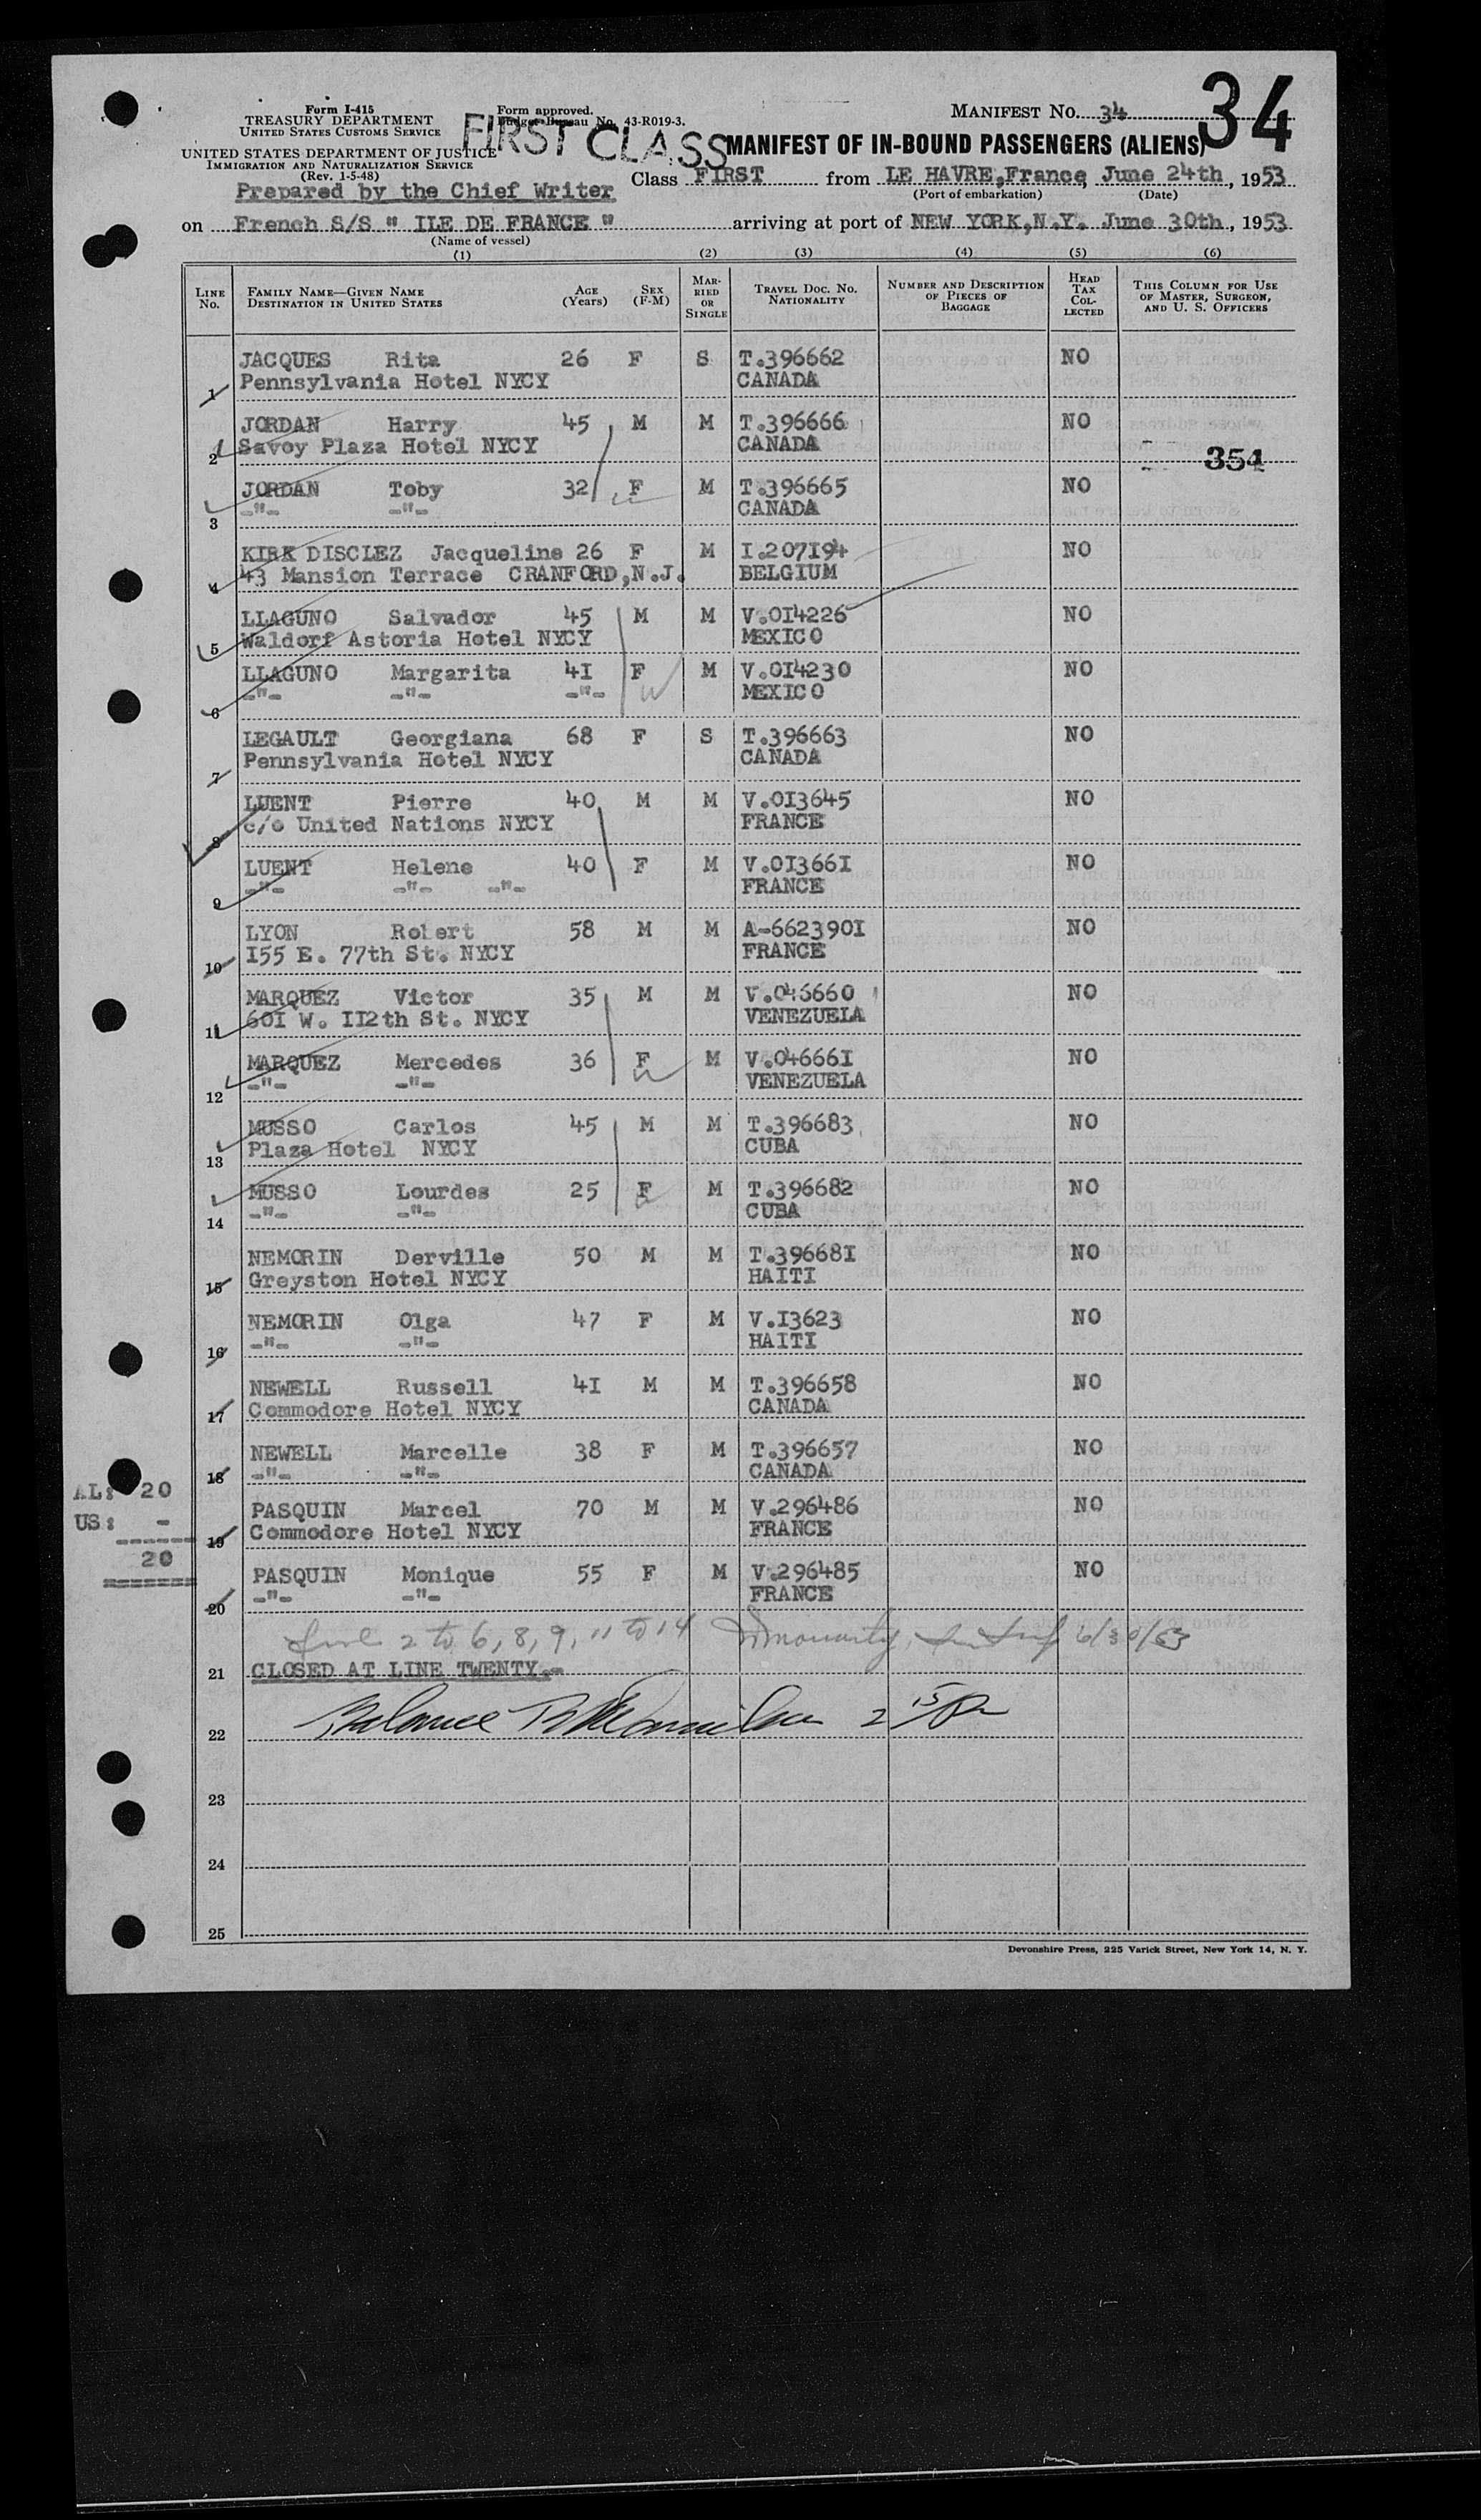 Form I-415
TREASURY DEPARTMENT
UNITED STATES CUSTOMS SERVICE
Form approved.
Budget Bureau No. 43-R019-3.
MANIFEST NO. 34
34
FIRST CLASS
UNITED STATES DEPARTMENT OF JUSTICE
IMMIGRATION AND NATURALIZATION SERVICE
(Rev. 1-5-48)
MANIFEST OF IN-BOUND PASSENGERS (ALIENS)
Prepared by the Chief Writer
Class FIRST from LE HAVRE,France, June 24th, 1953
(Port of embarkation) (Date)
on French S/S " ILE DE FRANCE " arriving at port of NEW YORK,N.Y. June 30th, 1953
(Name of vessel)
(1) (2) (3) (4) (5) (6)
LINE No. FAMILY NAME—GIVEN NAME DESTINATION IN UNITED STATES AGE (Years) SEX (F-M) MARRIED OR SINGLE TRAVEL DOC. NO. NATIONALITY NUMBER AND DESCRIPTION OF PIECES OF BAGGAGE HEAD TAX COLLECTED THIS COLUMN FOR USE OF MASTER, SURGEON, AND U. S. OFFICERS
JACQUES Rita 26 F S T.396662 NO
1 Pennsylvania Hotel NYCY CANADA
JORDAN Harry 45 M M T.396666 NO
2 Savoy Plaza Hotel NYCY CANADA
354
JORDAN Toby 32 F M T.396665 NO
3 -"- -"- CANADA
KIRK DISCLEZ Jacqueline 26 F M I.207194 NO
4 43 Mansion Terrace CRANFORD,N.J. BELGIUM
LLAGUNO Salvador 45 M M V.014226 NO
5 Waldorf Astoria Hotel NYCY MEXICO
LLAGUNO Margarita 41 F M V.014230 NO
6 -"- -"- -"- MEXICO
LEGAULT Georgiana 68 F S T.396663 NO
7 Pennsylvania Hotel NYCY CANADA
LUENT Pierre 40 M M V.013645 NO
8 c/o United Nations NYCY FRANCE
LUENT Helene 40 F M V.013661 NO
9 -"- -"- -"- FRANCE
LYON Robert 58 M M A-6623901 NO
10 155 E. 77th St. NYCY FRANCE
MARQUEZ Victor 35 M M V.046660 NO
11 601 W. 112th St. NYCY VENEZUELA
MARQUEZ Mercedes 36 F M V.046661 NO
12 -"- -"- VENEZUELA
MUSSO Carlos 45 M M T.396683 NO
13 Plaza Hotel NYCY CUBA
MUSSO Lourdes 25 F M T.396682 NO
14 -"- -"- CUBA
NEMORIN Derville 50 M M T.396681 NO
15 Greyston Hotel NYCY HAITI
NEMORIN Olga 47 F M V.13623 NO
16 -"- -"- HAITI
NEWELL Russell 41 M M T.396658 NO
17 Commodore Hotel NYCY CANADA
NEWELL Marcelle 38 F M T.396657 NO
18 -"- -"- CANADA
AL: 20
US: -
20
PASQUIN Marcel 70 M M V.296486 NO
19 Commodore Hotel NYCY FRANCE
PASQUIN Monique 55 F M V.296485 NO
20 -"- -"- FRANCE
2 to 6, 8, 9, 11 to 14 6/30/53
21 CLOSED AT LINE TWENTY.-
22 Balance 2 15 Pm
23
24
25
Devonshire Press, 225 Varick Street, New York 14, N. Y.